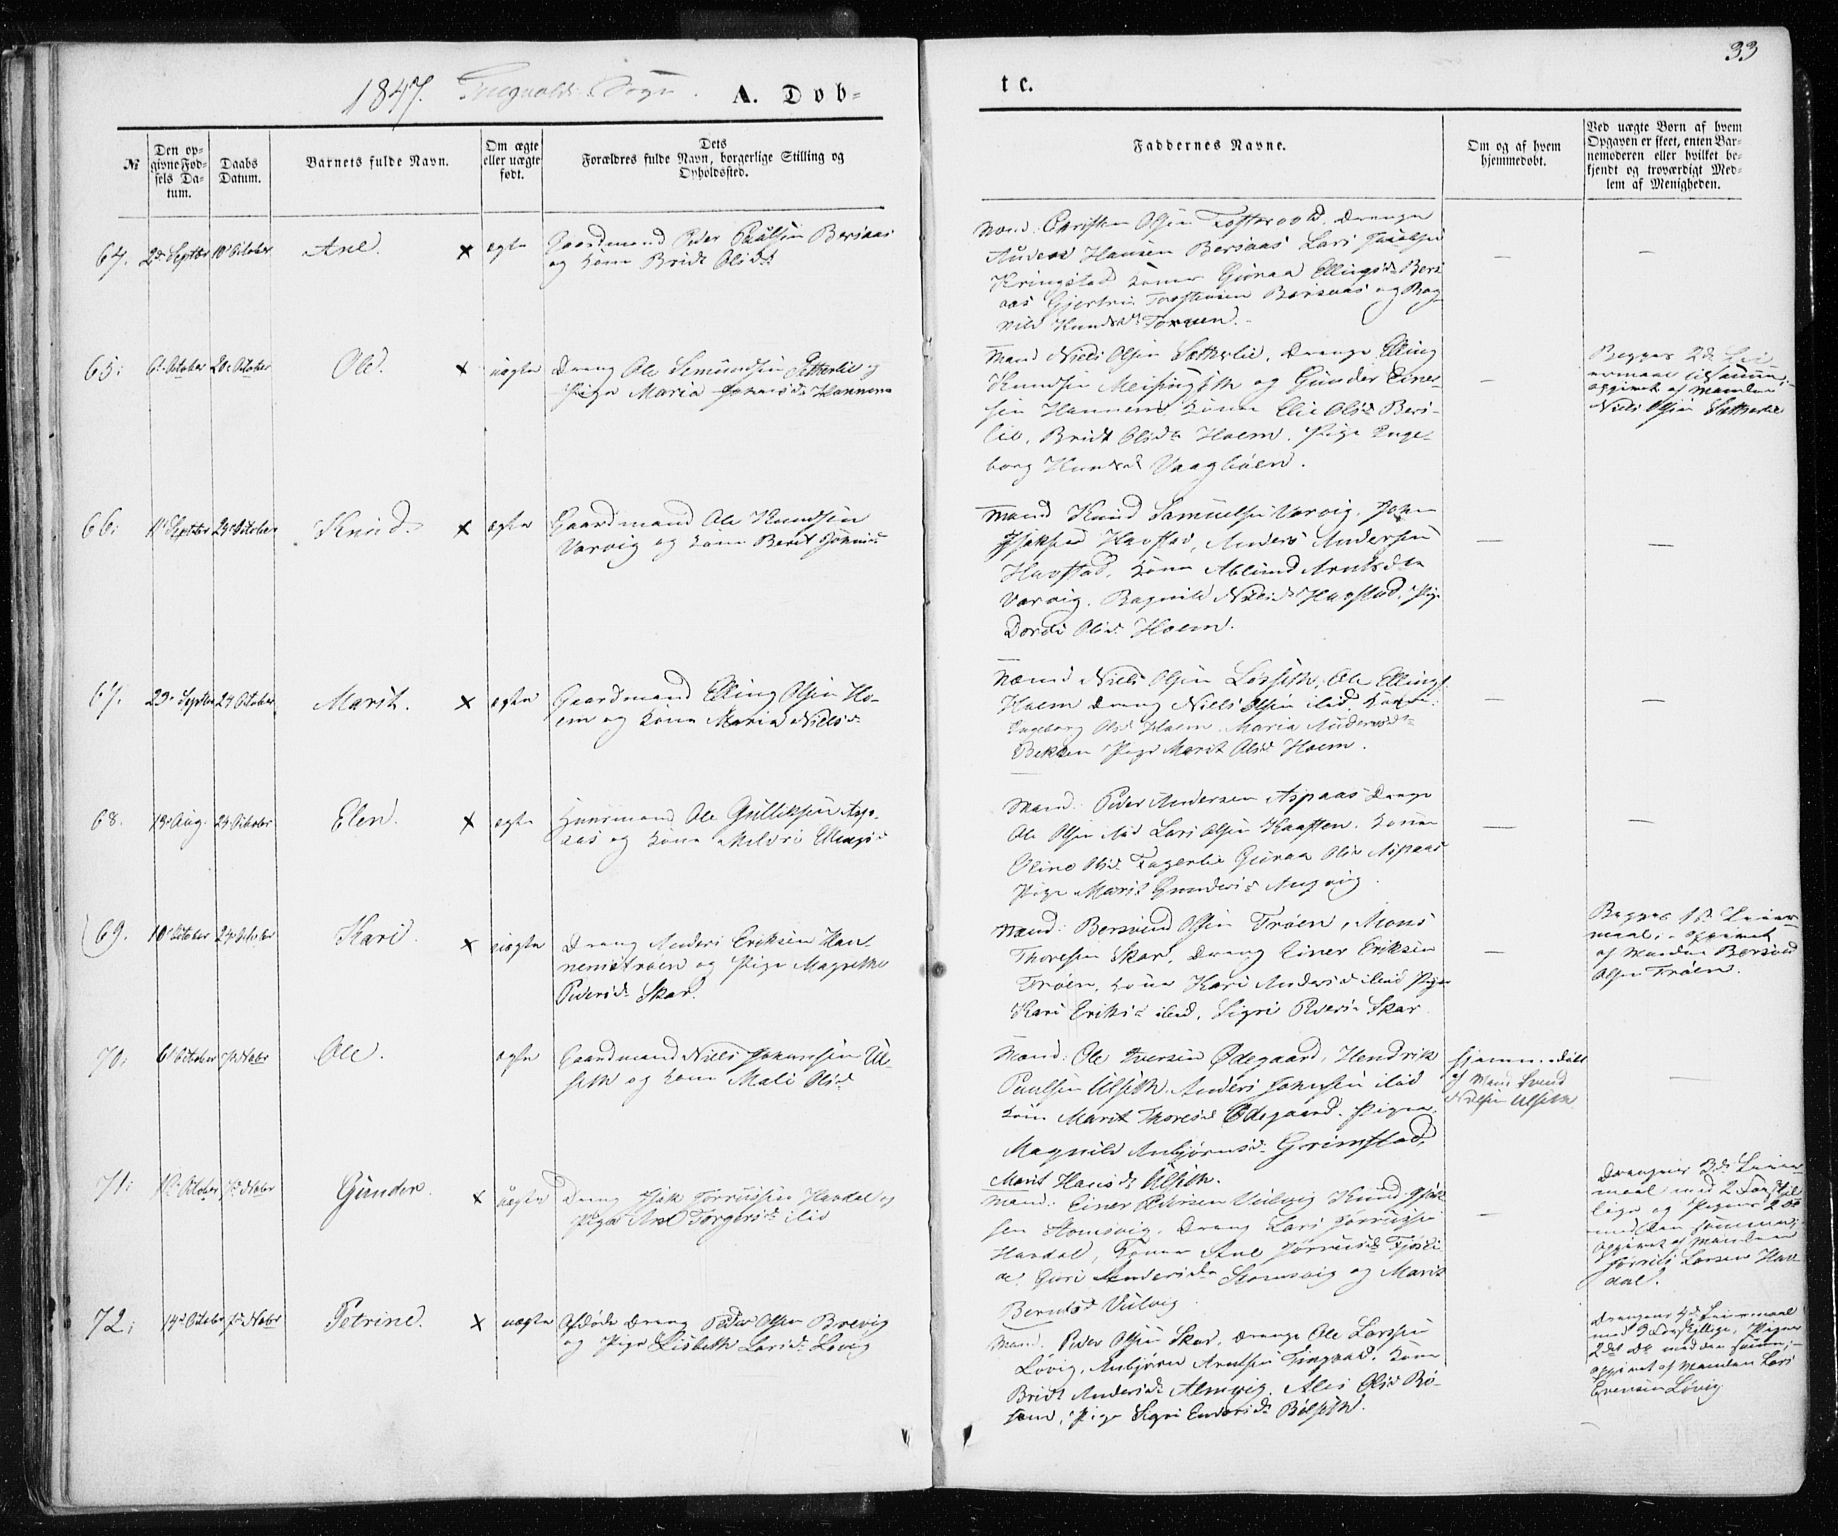 33
1847. Sogn. A. Døb-
te.
№
Den op-
givne Fød-
sels Da-
tum.
Daabs
Datum.
Barnets fulde Navn.
Om ægte
eller uægte
født.
Dets
Forældres fulde Navn, borgerlige Stilling og
Opholdssted.
Faddernes Navne.
Om og af hvem
hjemmedøbt.
Ved uægte Børn af hvem
Opgaven er skeet, enten Bar-
nemoderen eller hvilket be-
kjendt og troværdigt Med-
lem af Menigheden.
64. October Ane. × ægte
Gaardmand Peder Paulsen Bersaas
og Kone Bridt Olsdt
Mænd: Christen Olsen Drenge
Anders Hansen Bersaas Lars Jacobsen
Kringstad Koner Guraa Ellingsd. Bers-
aas Gjertru Bersaas og Rag-
nild Knudsdt
65. 6te October 20de October Ole. × uægte
Dreng Ole Semundsen Sætherlie og
Pige Maria Hannem
Mænd Niels Olsen Sætherlie, Drenge Elling
Knudsen Meisingseth og Gunder Einer-
sen Hannem, Koner Elie Olsd. Bers-
lie, Bridt Olsdt Hoem. Pige Inge-
borg Knudsd.
Begges 2det Lei-
ermaal tilsamme,
opgivet af Manden
Niels Olsen Sætherlie
66. 11te Septbr 24de October Knud. × ægte
Gaardmand Ole Knudsen
Varvig og Kone Berit
Mænd Knud Samuelsen Varvig. John
Havstad, Anders Andersen
Havstad. Kone
Varvig. Ragnild Nielsd. Havstad. Pige
Dordi Olsd. Hoem.
67. 23de Septbr 24de October Marit. × ægte
Gaardmand Elling Olsen Ho-
em og Kone Maria Nielsd.
Mænd Niels Olsen Ole Ellings.
Hoem Dreng Niels Olsen ibid. Koner:
Ingeborg Olsd Hoem. Maria Andersdt
Bekken Pige Marit Olsd. Hoem.
68. 13de Aug. 24de October Elen. × ægte
Huusmand Ole Gulliksen Asp-
aas og Kone Mildri Ellingsd
Mænd: Peder Andersen Aspaas Drenge
Ole Olsen ibid Lars Olsen Haasten. Koner
Oline Olsd. Fagerlie Guraa Olsd Aspaas
Pige Marit Gundersd. Angvig.
69. 10de October 24de October Kari. × uægte
Dreng Anders Eriksen Han-
nemstrøen og Pige Magrethe
Pedersdt Skar.
Mænd: Bersvend Olsen Trøen, Mons
Thoresen Skar. Dreng Einer Eriksen
Trøen, Kone Kari Andersd ibid Piger
Kari Eriksd ibid, Sigri Pedersd Skar
Begges 1ste Leier-
maal; opgivet
af Manden Bersvend
Olsen Trøen.
70. 6te October 7de Novbr Ole. ægte
Gaardmand Niels Johansen Ul-
seth og Kone Mali Olsd
Mænd: Ole Iversen Ødegaard, Hendrik
Paulsen Ulseth. Anders Johnsen ibid
Kone Marit Thoresd Ødegaard. Piger
Magnild Anbjørnsd. Grimstad,
Marit Hansd. Ulseth.
hjemmedøbt
af Mand Svend
Nilsen Ulseth
71. October 7de Novbr Gunder. × uægte
Dreng Isak Havdal og
Pige Ane Torgersd. ibid
Mænd: Einer Pedersen Vulvig Knud Isak-
sen Stomsvig. Dreng Lars
Havdal, Koner Ane
Guri Andersdt Stomsvig og Marit
Berntsd Vulvig.
Drengens 3de Leier-
maal med 2 Forskjel-
lige og Pigens 2det
med den samme;
opgivet af Manden
Larsen Hav-
dal.
72. 14de October 7de Novbr Petrine. × uægte
Afdøde Dreng Peder Olsen Brevig
og Pige Lisbeth Larsd. Løvig
Mænd. Peder Olsen Skar, Drenge Ole Larssen
Løvig, Anbjørn Arntsen Tingvold. Kone
Bridt Andersdt Almvig. Ales Olsd Bø-
Pige Sigri Endresdt Bølseth.
Drengens 4de Leiermaal
med 3 forskjellige, Pigens
2det do med den samme;
opgivet af Manden Lars
Evensen Løvig